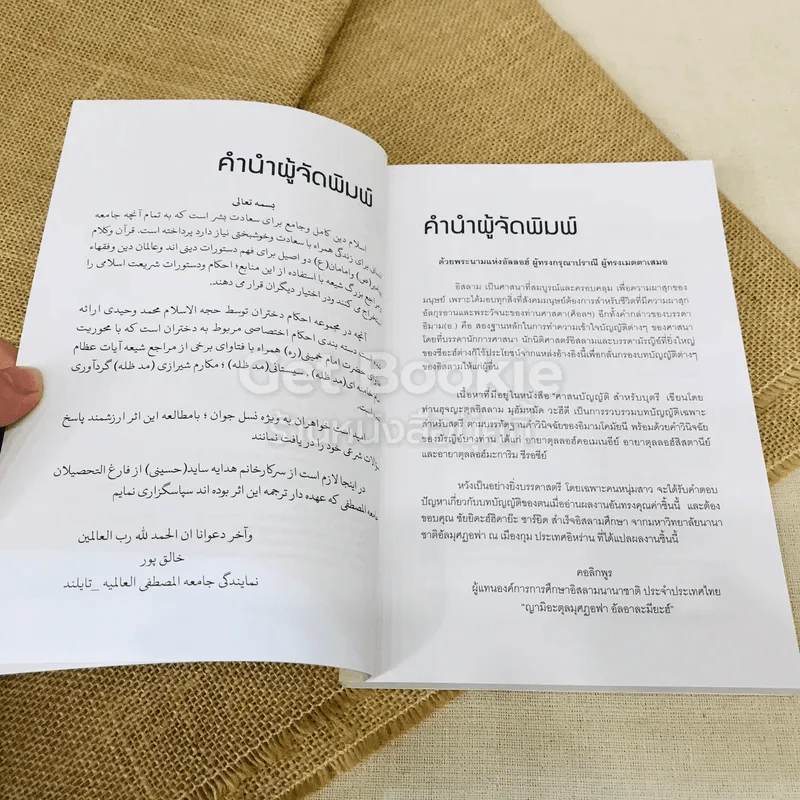 คำนำผู้จัดพิมพ์
بسمه تعالی
اسلام دین کامل وجامع برای سعادت بشر است که به تمام آنچه جامعه
برای زندگی همراه با سعادت وخوشبختی نیاز دارد پرداخته است. قرآن وکلام
(ص) وامامان(ع) دو اصیل برای فهم دستورات دینی اند وعالمان دین وفقهاء
مراجع بزرگ شیعه با استفاده از این منابع؛ احکام ودستورات شریعت اسلامی را
می کنند ودر اختیار دیگران قرار می دهند.
آنچه در مجموعه احکام دختران توسط حجه الاسلام محمد وحیدی ارائه
است دسته بندی احکام اختصاصی مربوط به دختران است که با محوریت
حضرت امام خمینی(ره) همراه با فتاوای برخی از مراجع شیعه آیات عظام
ای(مد ظله) ، سیستانی(مد ظله) ؛ مکارم شیرازی (مد ظله) گردآوری
است.
امید است خواهران به ویژه نسل جوان ؛ بامطالعه این اثر ارزشمند پاسخ
شرعی خود را در یافت نمایند
در اینجا لازم است از سرکارخانم هدایه ساید(حسینی) از فارغ التحصیلان
المصطفی که عهده دار ترجمه این اثر بوده اند سپاسگزاری نمایم
وآخر دعوانا ان الحمد لله رب العالمین
خالق پور
نمایندگی جامعه المصطفی العالمیه _تایلند
คำนำผู้จัดพิมพ์
ด้วยพระนามแห่งอัลลอฮ์ ผู้ทรงกรุณาปราณี ผู้ทรงเมตตาเสมอ
อิสลาม เป็นศาสนาที่สมบูรณ์และครอบคลุม เพื่อความผาสุกของ
มนุษย์ เพราะได้มอบทุกสิ่งที่สังคมมนุษย์ต้องการสำหรับชีวิตที่มีความผาสุก
อัลกุรอานและพระวจนะของท่านศาสดา(ศ็อลฯ) อีกทั้งคำกล่าวของบรรดา
อิมาม(อ.) คือ สองฐานหลักในการทำความเข้าใจบัญญัติต่างๆ ของศาสนา
โดยที่บรรดานักการศาสนา นักนิติศาสตร์อิสลามและบรรดามัรญิอ์ที่ยิ่งใหญ่
ของชีอะฮ์ต่างก็ใช้ประโยชน์จากแหล่งอ้างอิงนี้เพื่อกลั่นกรองบทบัญญัติต่างๆ
ของอิสลามให้แก่ผู้อื่น
เนื้อหาที่มีอยู่ในหนังสือ "ศาสนบัญญัติ สำหรับบุตรี เขียนโดย
ท่านฮุจญะตุลอิสลาม มุฮัมหมัด วะฮีดี เป็นการรวบรวมบทบัญญัติเฉพาะ
สำหรับสตรี ตามบรรทัดฐานคำวินิจฉัยของอิมามโคมัยนี พร้อมด้วยคำวินิจฉัย
ของมัรญิอ์บางท่าน ได้แก่ อายาตุลลอฮ์คอเมเนอีย์ อายาตุลลอฮ์ซิสตานีย์
และอายาตุลลอฮ์มะการิม ชีรอซีย์
หวังเป็นอย่างยิ่งบรรดาสตรี โดยเฉพาะคนหนุ่มสาว จะได้รับคำตอบ
ปัญหาเกี่ยวกับบทบัญญัติของตนเมื่ออ่านผลงานอันทรงคุณค่าชิ้นนี้ และต้อง
ขอบคุณ ซัยยิดะฮ์ฮิดายีะ ซาร์ยิด สำเร็จอิสลามศึกษา จากมหาวิทยาลัยนานา
ชาติอัลมุศฏอฟา ณ เมืองกุม ประเทศอิหร่าน ที่ได้แปลผลงานชิ้นนี้
คอลิกพูร
ผู้แทนองค์การการศึกษาอิสลามนานาชาติ ประจำประเทศไทย
"ญามิอะตุลมุศฏอฟา อัลอาละมียะฮ์"
Get Bookie